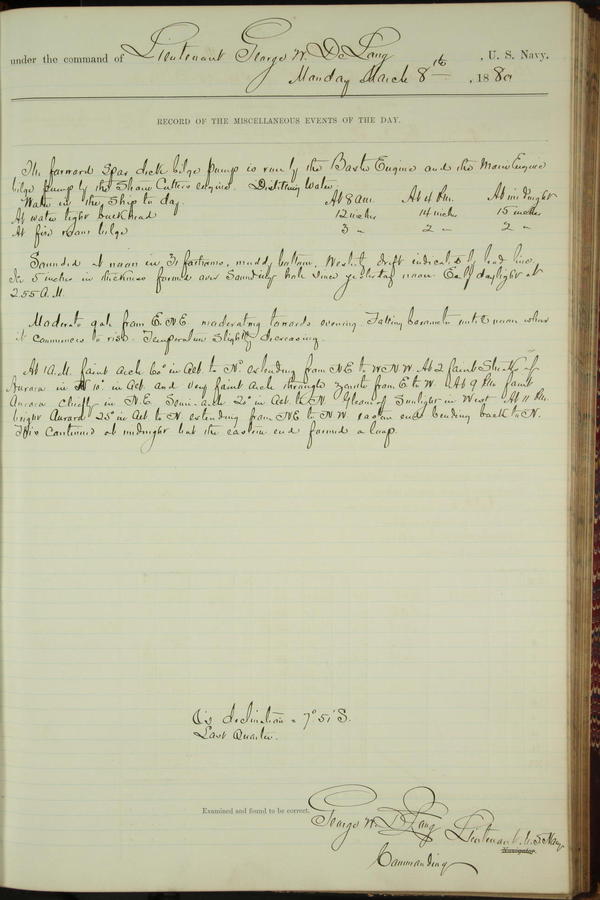 under the command of Lieutenant George W. De Long, U. S. Navy.
Monday March 8th, 1880
RECORD OF THE MISCELLANEOUS EVENTS OF THE DAY.
The forward Spar deck bilge pump is run by the Baxter Engine and the Main Engine
bilge pump by the Steam Cutters engine. Distilling water.
Water in the Ship to day. At 8 am. At 4 Pm. At midnight
At water tight bulkhead 12 inches 14 inches 15 inches
At fire room bilge 3 " 2 " 2 "
Sounded at noon in 31 fathoms, muddy bottom. Westerly drift indicated by lead line.
Ice 5 inches in thickness formed over Sounding hole since yesterday noon. End of daylight at
2.55 A.M.
Moderate gale from E.N.E. moderating towards evening. Falling barometer until noon when
it commences to rise. Temperature slightly decreasing.
At 1 A.M. faint arch 60° in alt. to N'd extending from NE to WNW. At 2 faint Streaks of
Aurora in N 10° in alt. and very faint arch through zenith from E to W. At 9 Pm faint
Aurora chiefly in N.E. Semi-arch 20° in alt. to N. Gleam of Sunlight in West. At 11 Pm.
bright Aurora 25° in alt to N. extending from NE to N.W. eastern end bending back to N.
This continued at midnight but the eastern end formed a loop.
☾'s declination = 7° 51' S.
Last Quarter.
Examined and found to be correct.
George W. De Long Lieutenant U.S. Navy
Navigator.
Commanding